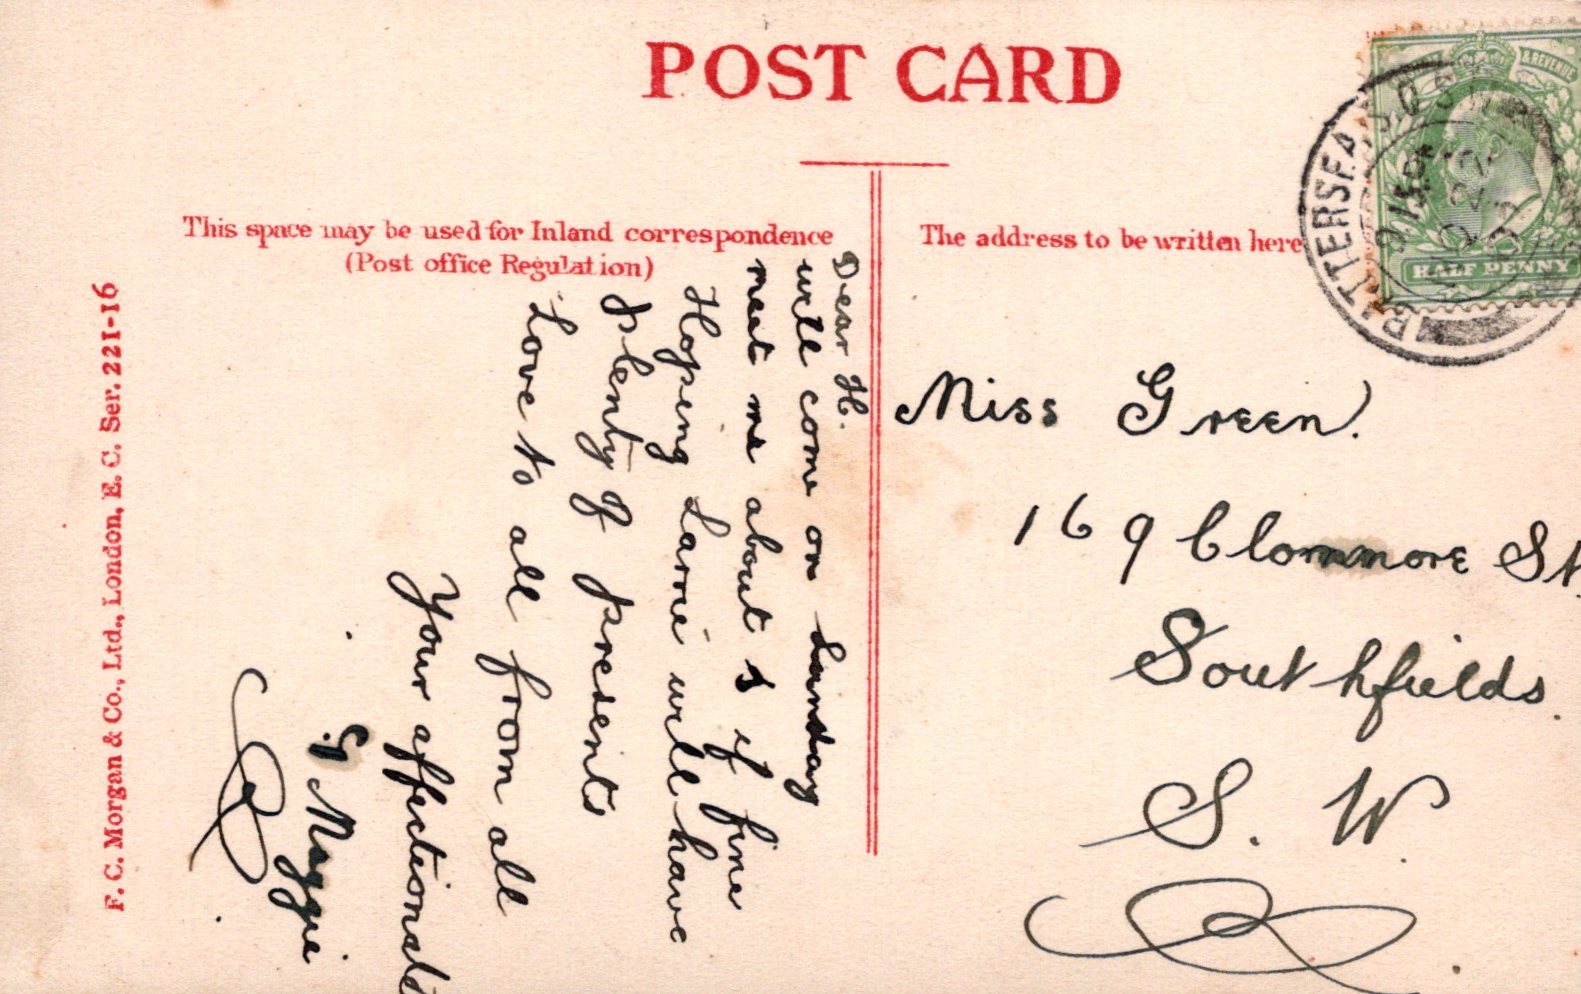 POST CARD
This space may be used for Inland correspondence
(Post office Regulation)
The address to be written here
& REVENUE
HALF PENNY
BATTERSEA
F. C. Morgan & Co., Ltd., London, E. C. Ser. 221-16
Dear H.
will come on Sunday
meet me about 3 if fine
Hoping Larrie will have
plenty of presents
Love to all from all
Your affectionate
Maggie
Miss Green.
169 Clonmore St.
Southfields.
S. W.